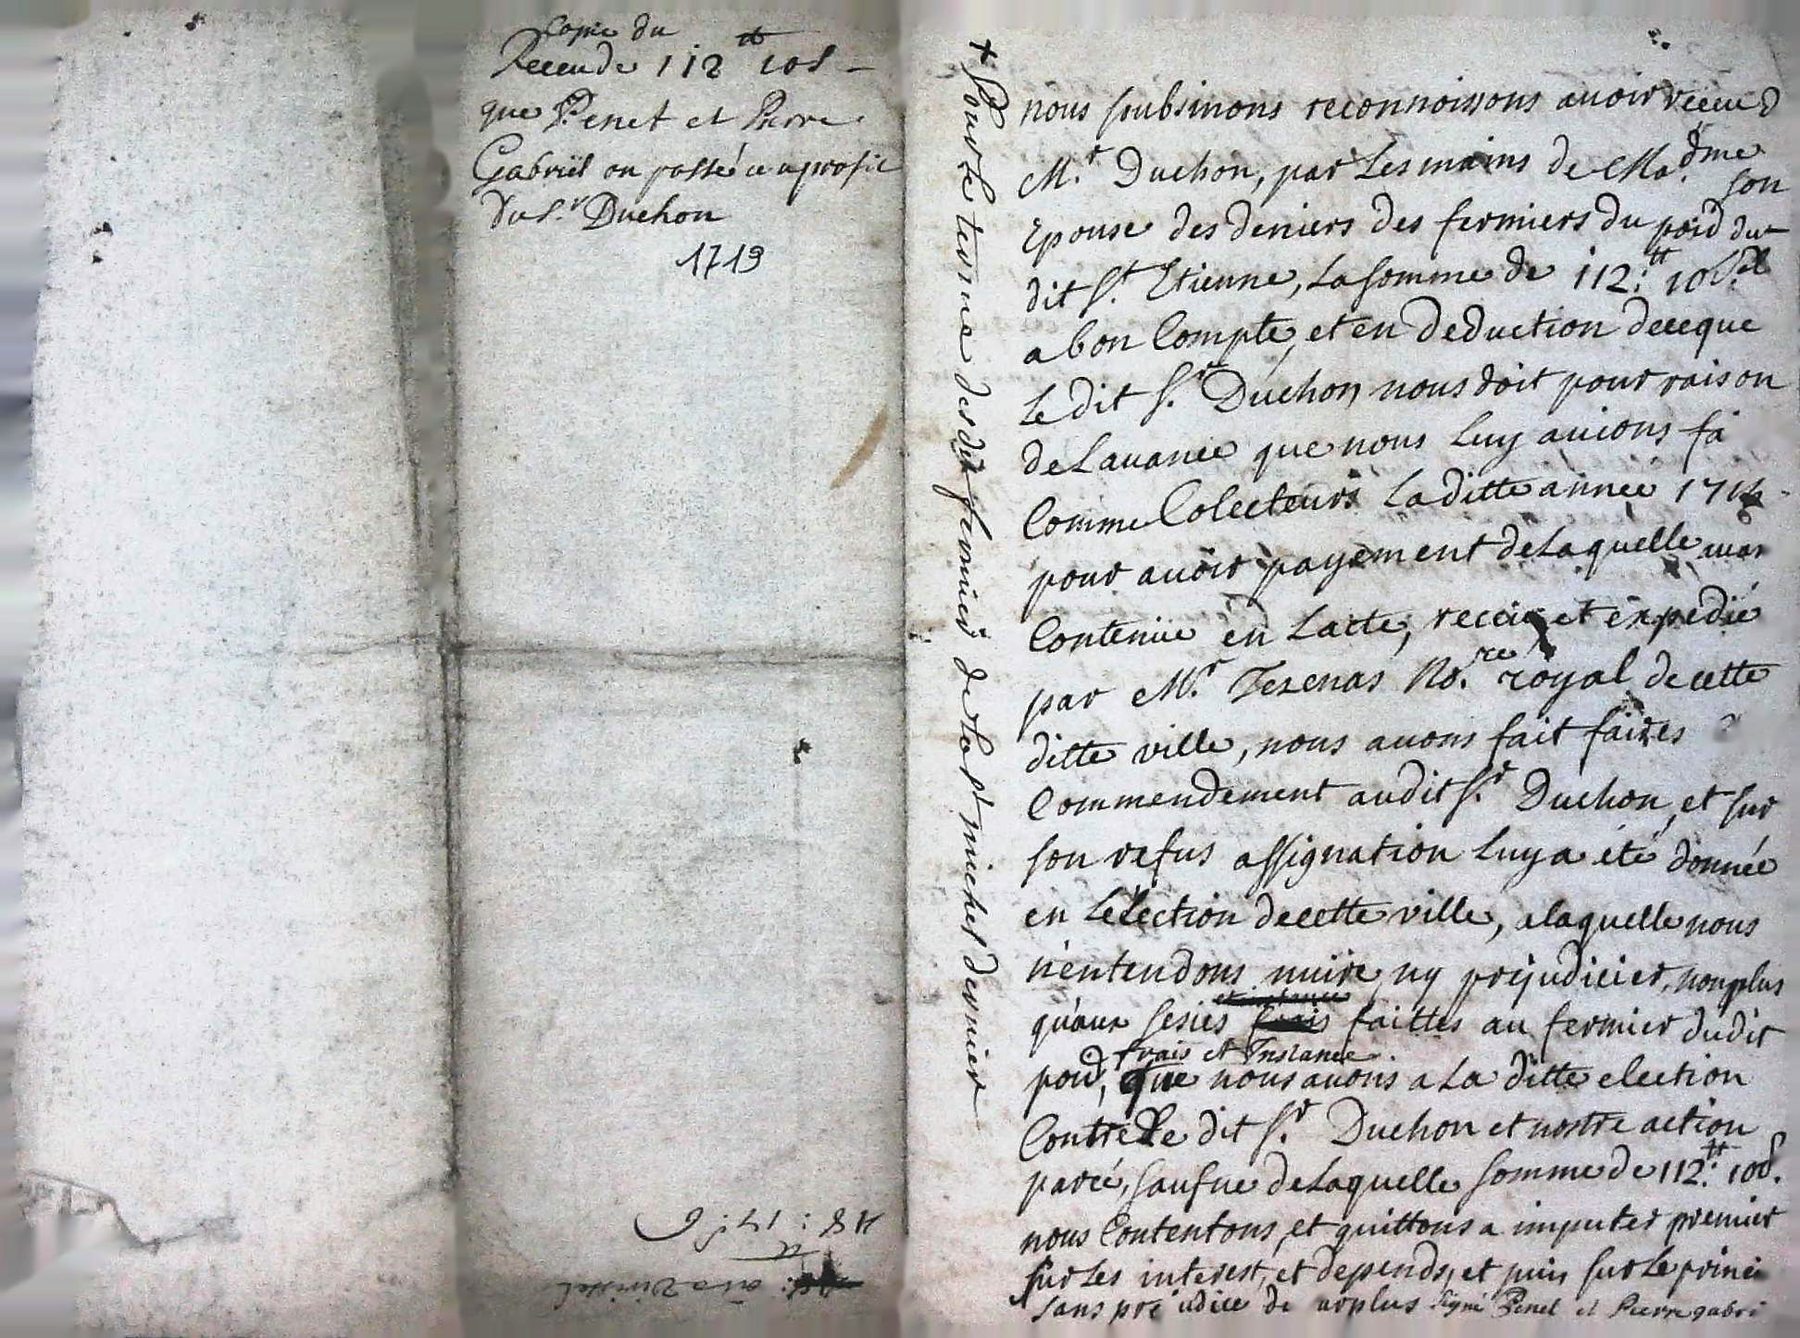 Copie du
Receu de 112 ₶ 10 s
que Penet et Pierre
Gabriel on passé au profit
du S.r Duchon
1719
+ Pour le terme des dit fermier de la S.t michel dernier
nous soubsinons reconnoissons auoir receu d
M.r Duchon, par Les mains de Mad.me son
Epouse des deniers des fermiers du poid du
dit S.t Etienne, La somme de 112.₶ 10 s.
a bon Compte, et en deduction de ce que
Le dit S.r Duchon nous doit pour raison
de Lauance que nous Luy auions fa
Comme Colecteurs La ditte année
pour auoir payement de Laquelle
Contenüe en Lacte, receu et expedié
par M.r Tezenas No.re royal de cette
ditte ville, nous auons fait faire
Commendement audit S.r Duchon, et sur
son refus assignation Luy a été donnée
en Lélection de cette ville, a laquelle nous
n'entendons nuire, ny prejudicier, non plus
qu'aux sesies faittes au fermier dudit
poid, frais et Instance que nous auons a La ditte election
Contre Le dit S.r Duchon et nostre action
parcé, de Laquelle somme de 112.₶ 10 s.
nous Contentons, et quittons a imputer premier
sur Les interest, et depends, et puis sur Le princi
sans prejudice de Signé Penet et Pierre gabri